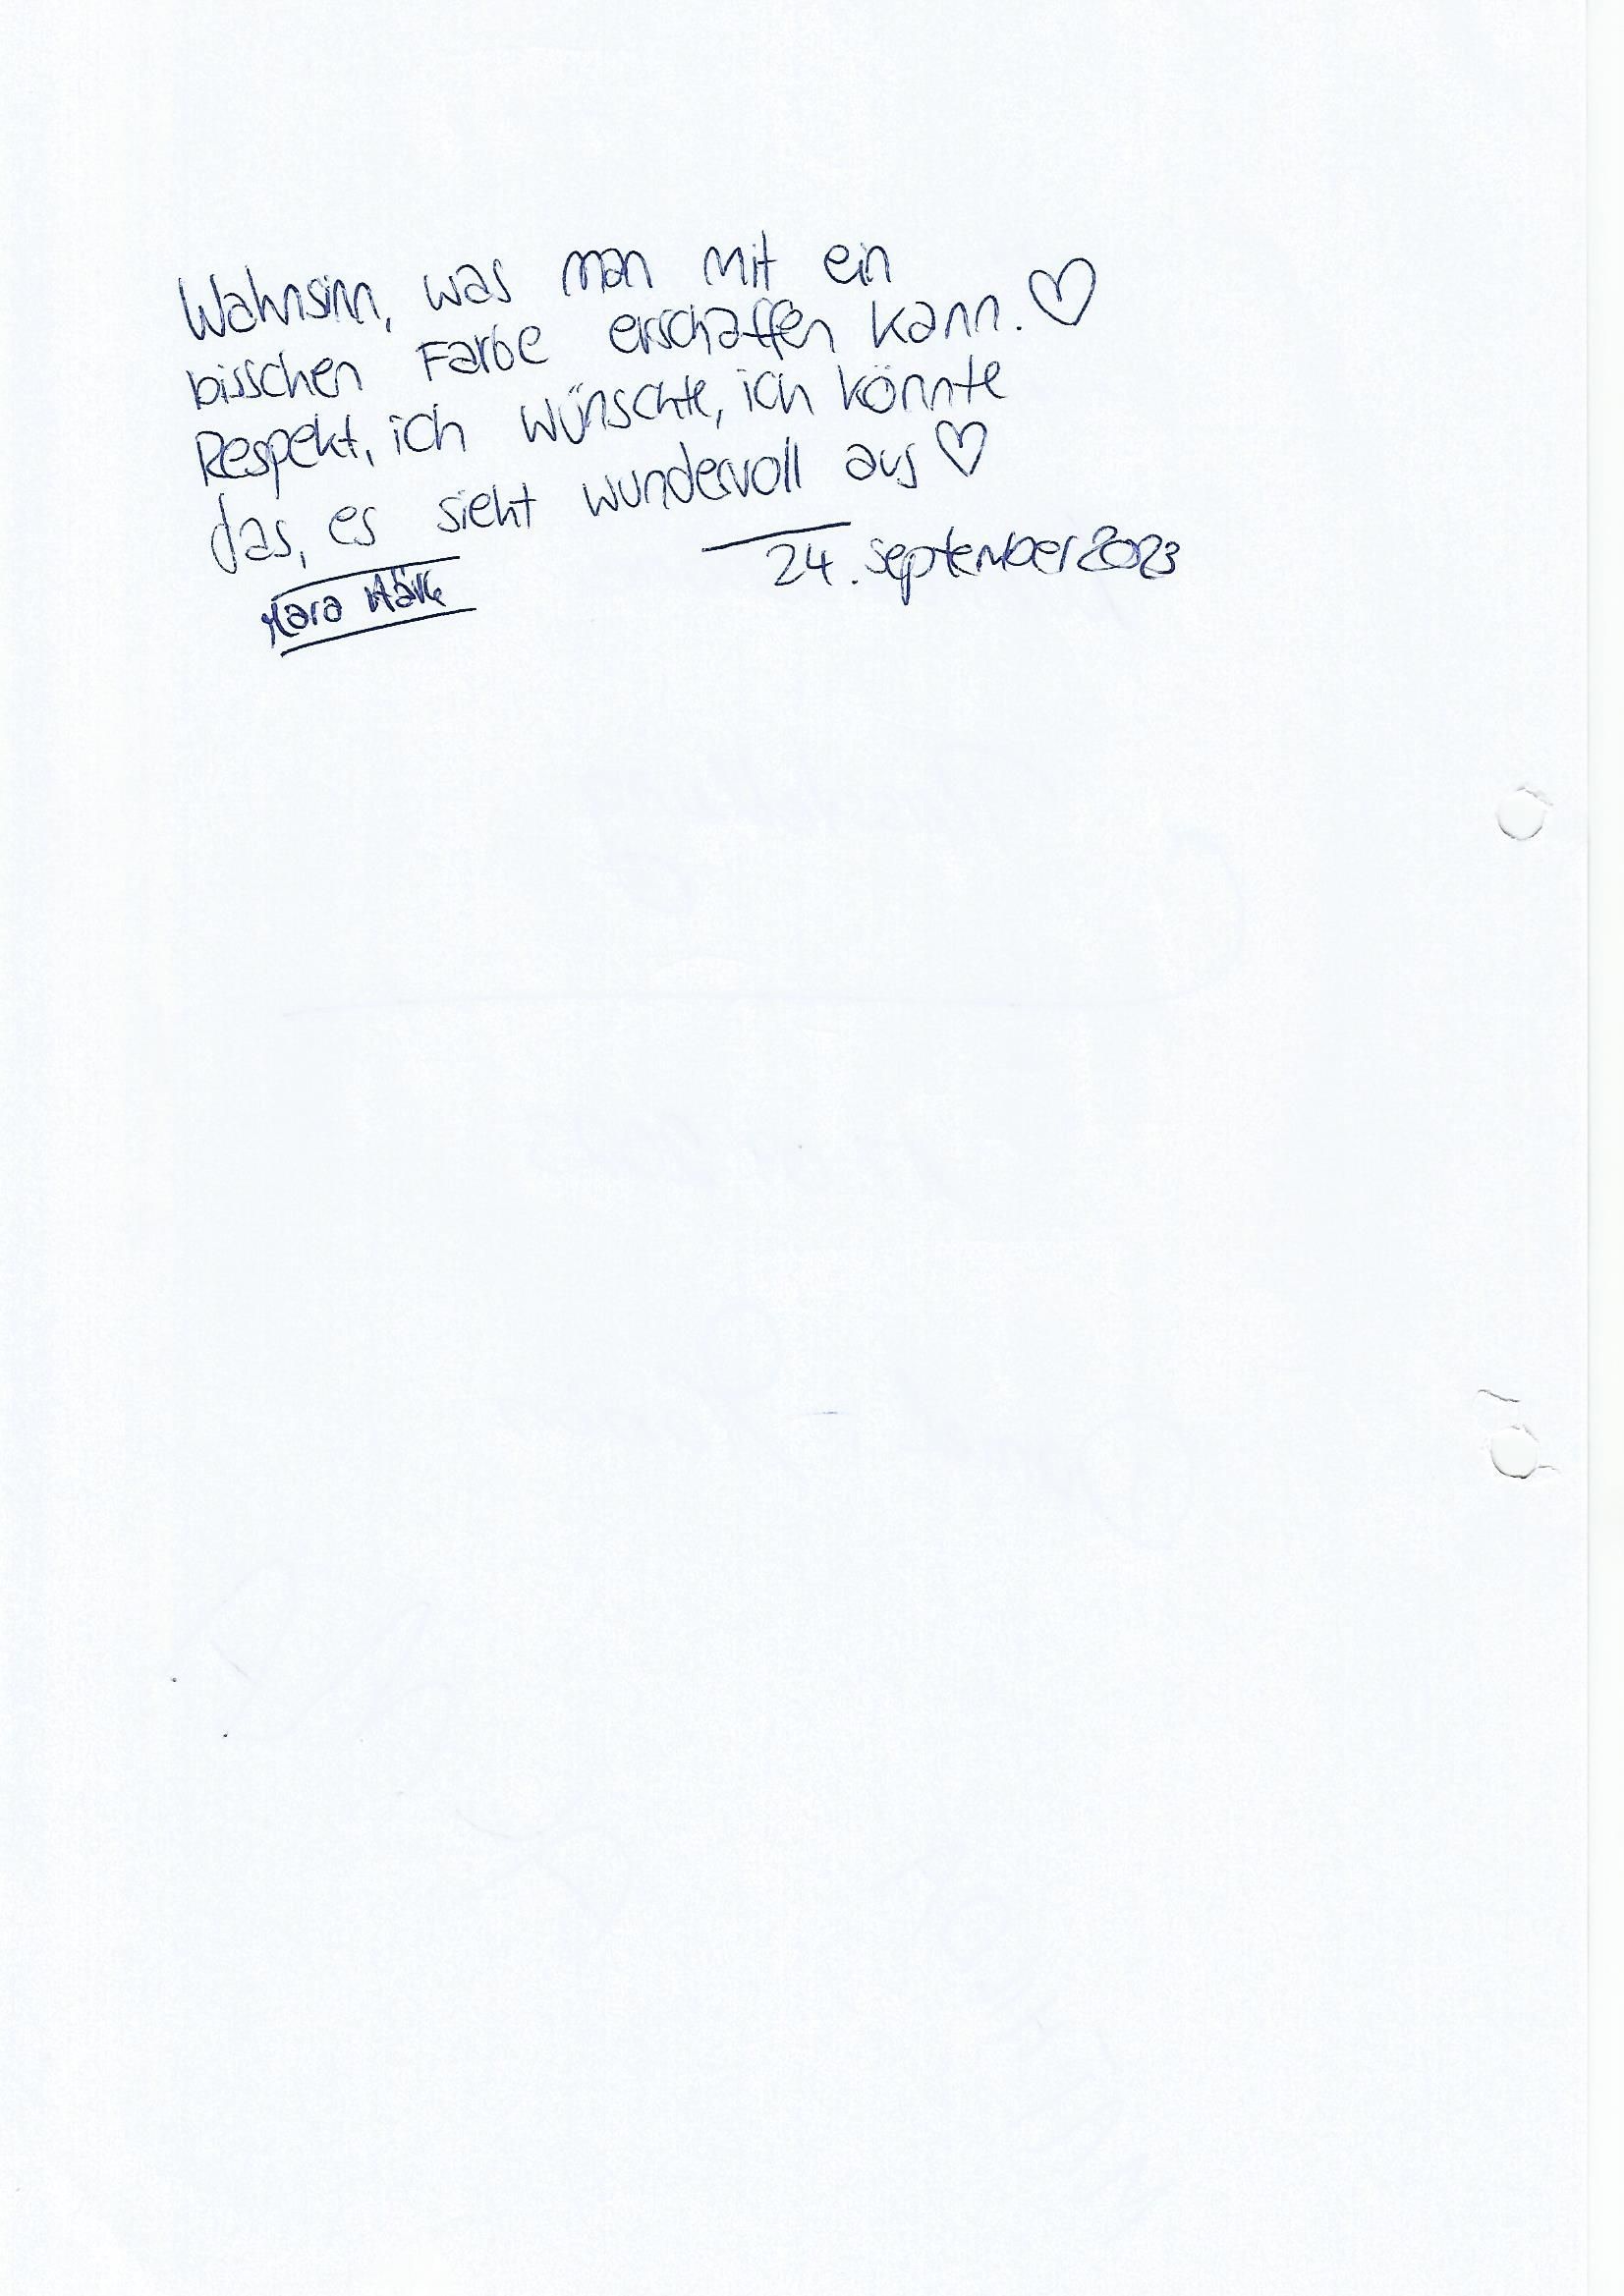 Wahnsinn, was man mit ein
bisschen Farbe erschaffen kann. ♡
Respekt, ich wünschte, ich könnte
das, es sieht wundervoll aus ♡
24. september 2023
Mara